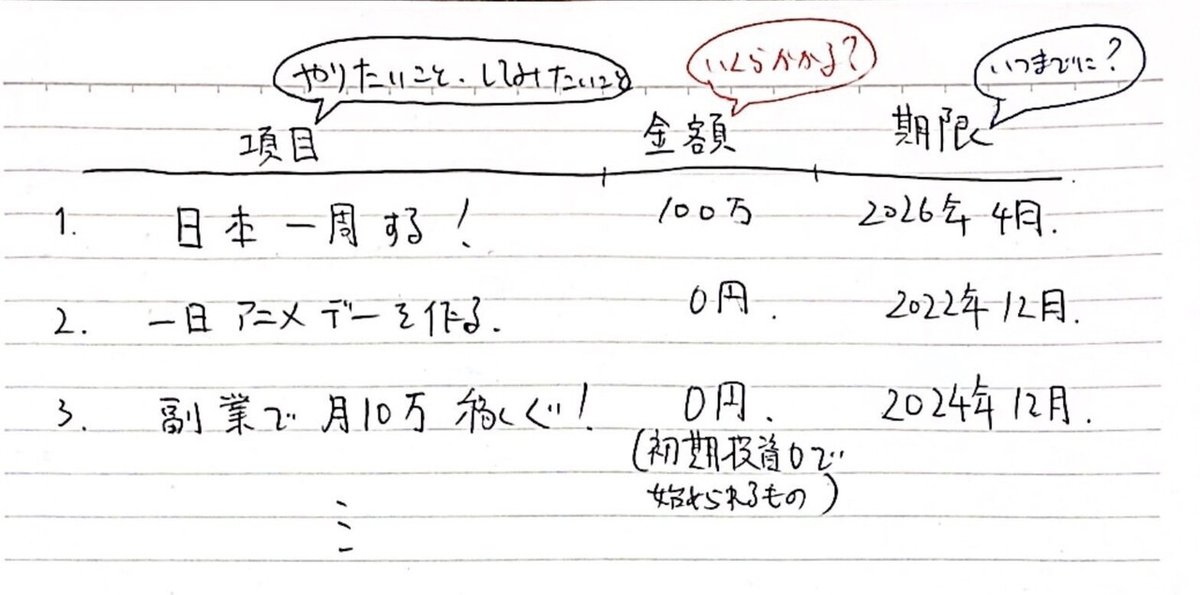 やりたいこと・してみたいこと
いくらかかる?
いつまでに?
項目 金額 期限
1. 日本一周する! 100万 2026年4月.
2. 一日アニメデーを作る. 0円. 2022年12月.
3. 副業で月10万稼しぐ! 0円. 2024年12月.
(初期投資0で
始められるもの)